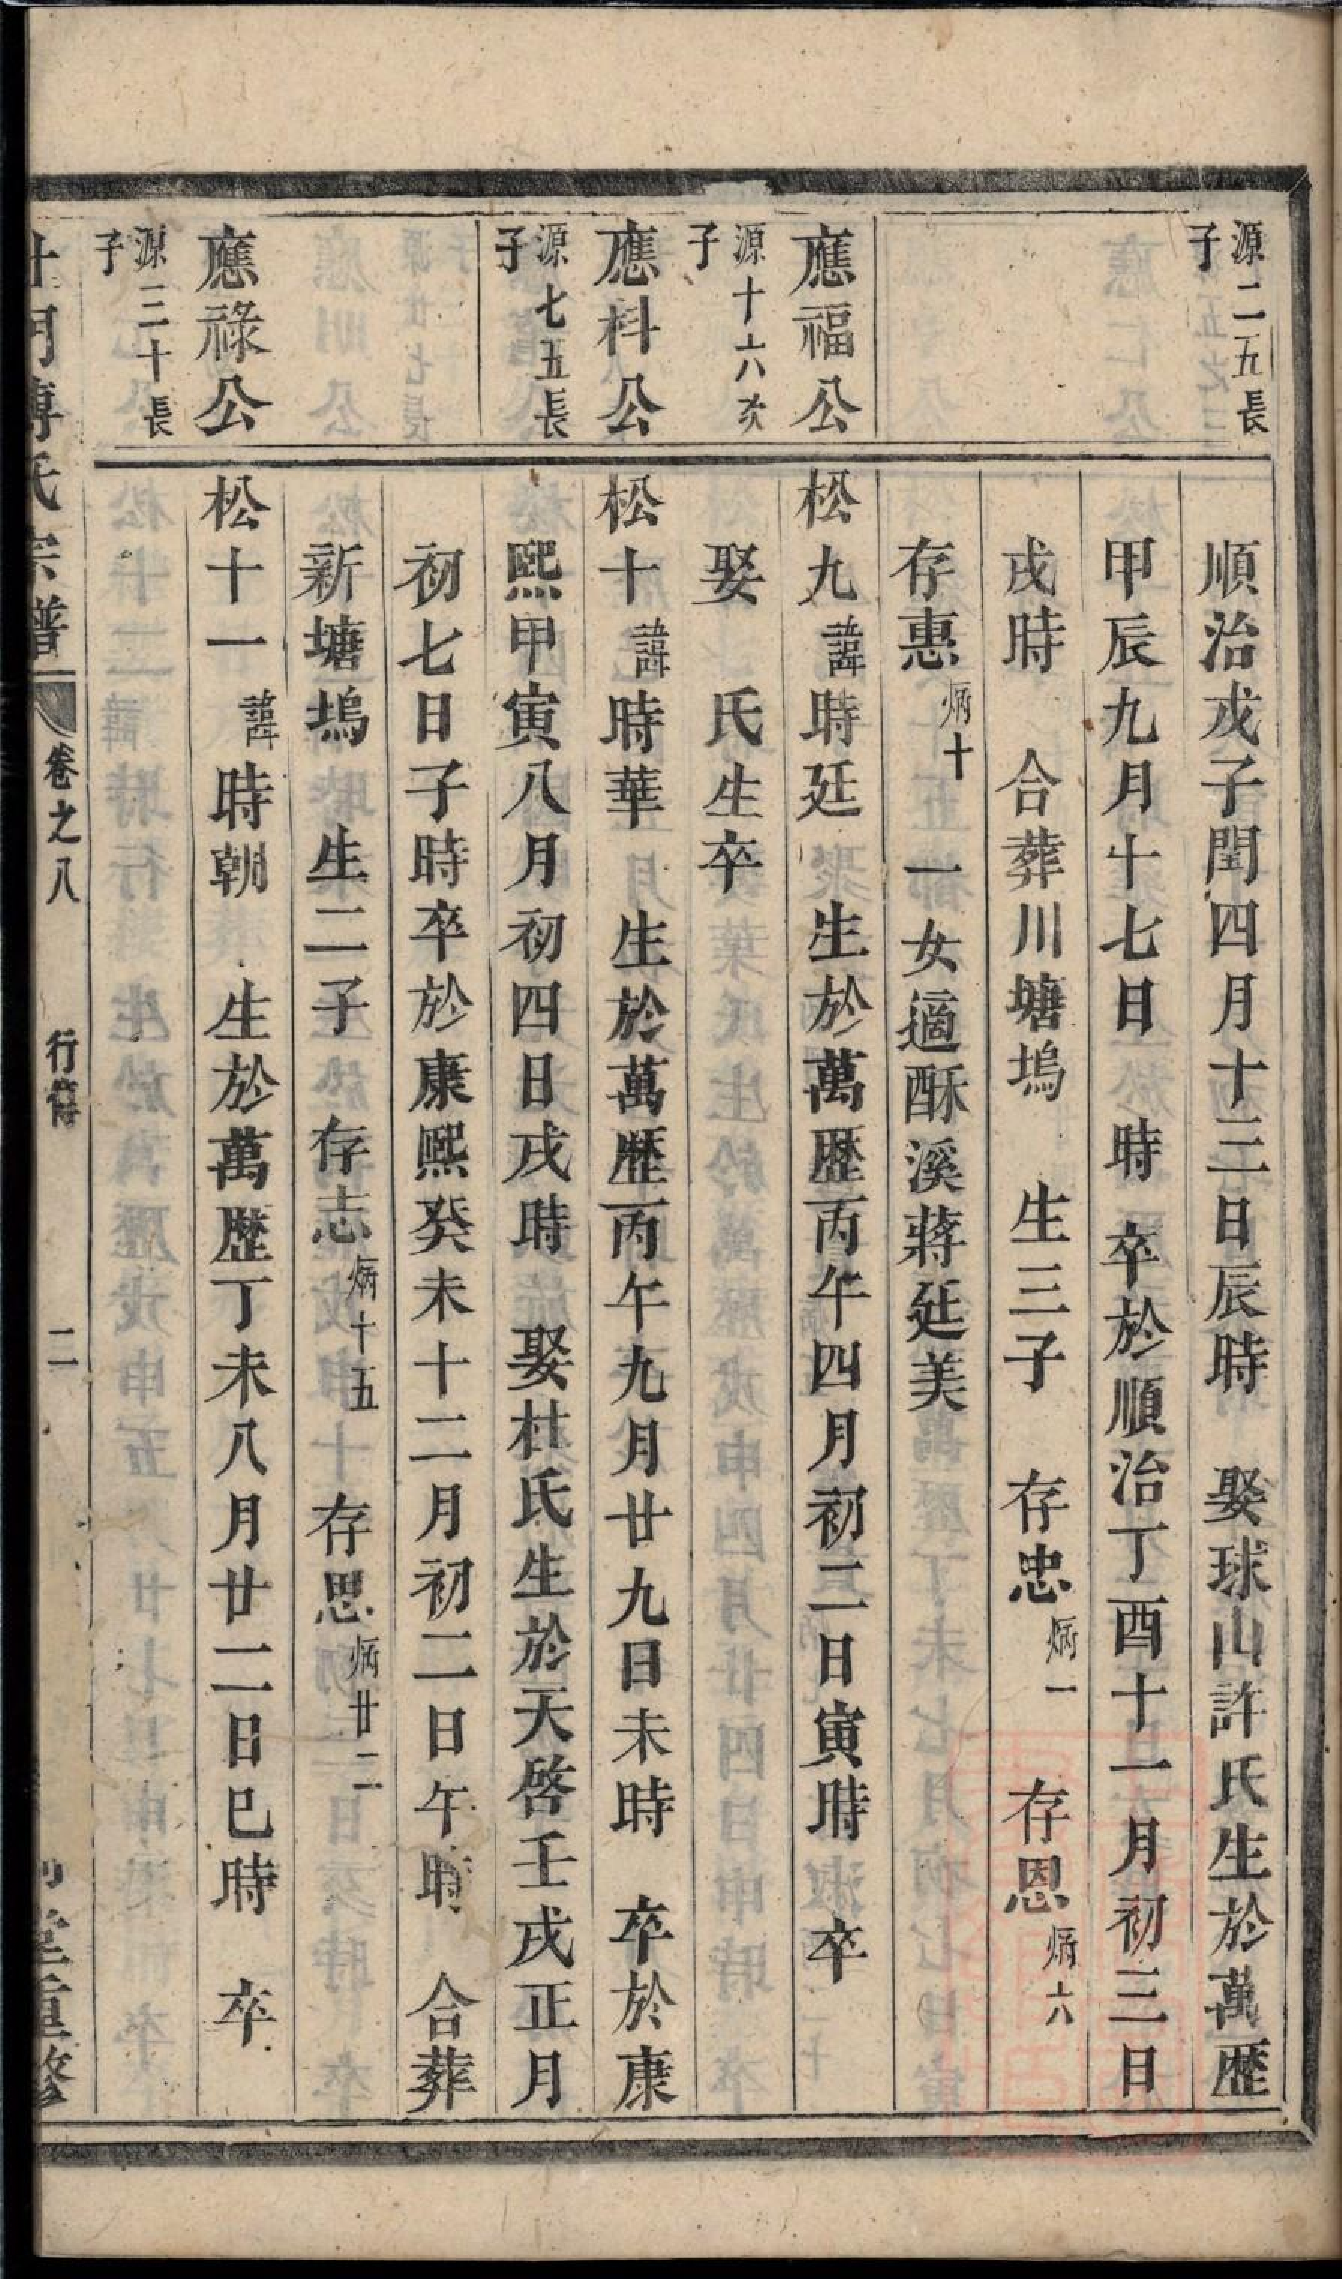 源二五長
子
順治戊子閏四月十三日辰時　娶球山許氏生於萬歷
甲辰九月十七日　時　卒於順治丁酉十一月初三日
戌時　合葬川塘塢　生三子　存忠炳一　存恩炳六
存惠炳十　一女適酥溪蔣延美
應福公
松九諱時廷　生於萬歷丙午四月初二日寅時　卒
源十六次
子
娶　氏生卒
應科公
松十諱時華　生於萬歷丙午九月廿九日未時　卒於康
源七五長
子
熙甲寅八月初四日戌時　娶杜氏生於天啓壬戌正月
初七日子時卒於康熙癸未十二月初二日午時　合葬
新塘塢　生二子　存志炳十五　存思炳廿二
應祿公
松十一諱時朝　生於萬歷丁未八月廿二日巳時　卒
源三十長
子
傅氏宗譜　卷之八　行傳　二　堂重修